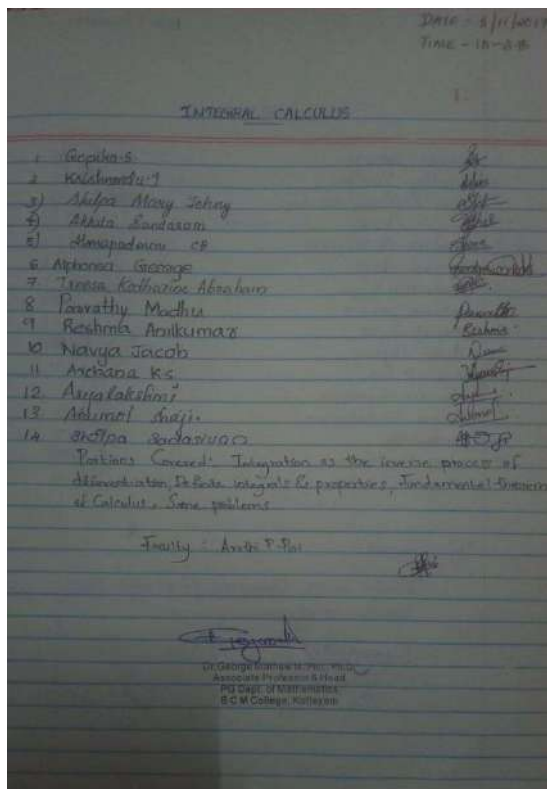 DATE - 5/11/2017
TIME - 
INTEGRAL CALCULUS
1 Gopika S
2 Krishnendu J
3) Shilpa Mary Johny
4) Akhila Sundaram
5) CB
6 Alphonsa George
7 Treesa Katharine Abraham
8 Parvathy Madhu Parvathy
9 Reshma Anilkumar Reshma
10 Navya Jacob
11 Archana K.S.
12. Aryalakshmi
13 Anumol Shaji.
14 Shilpa Sadasivan
Portions Covered: Integration as the inverse process of
differentiation, Definite integrals & properties, Fundamental theorem
of Calculus, Some problems
Faculty : Arathi P. Pai
Dr. George Mathew M.Phil., Ph.D
Associate Professor & Head
PG Dept. of Mathematics
B C M College, Kottayam